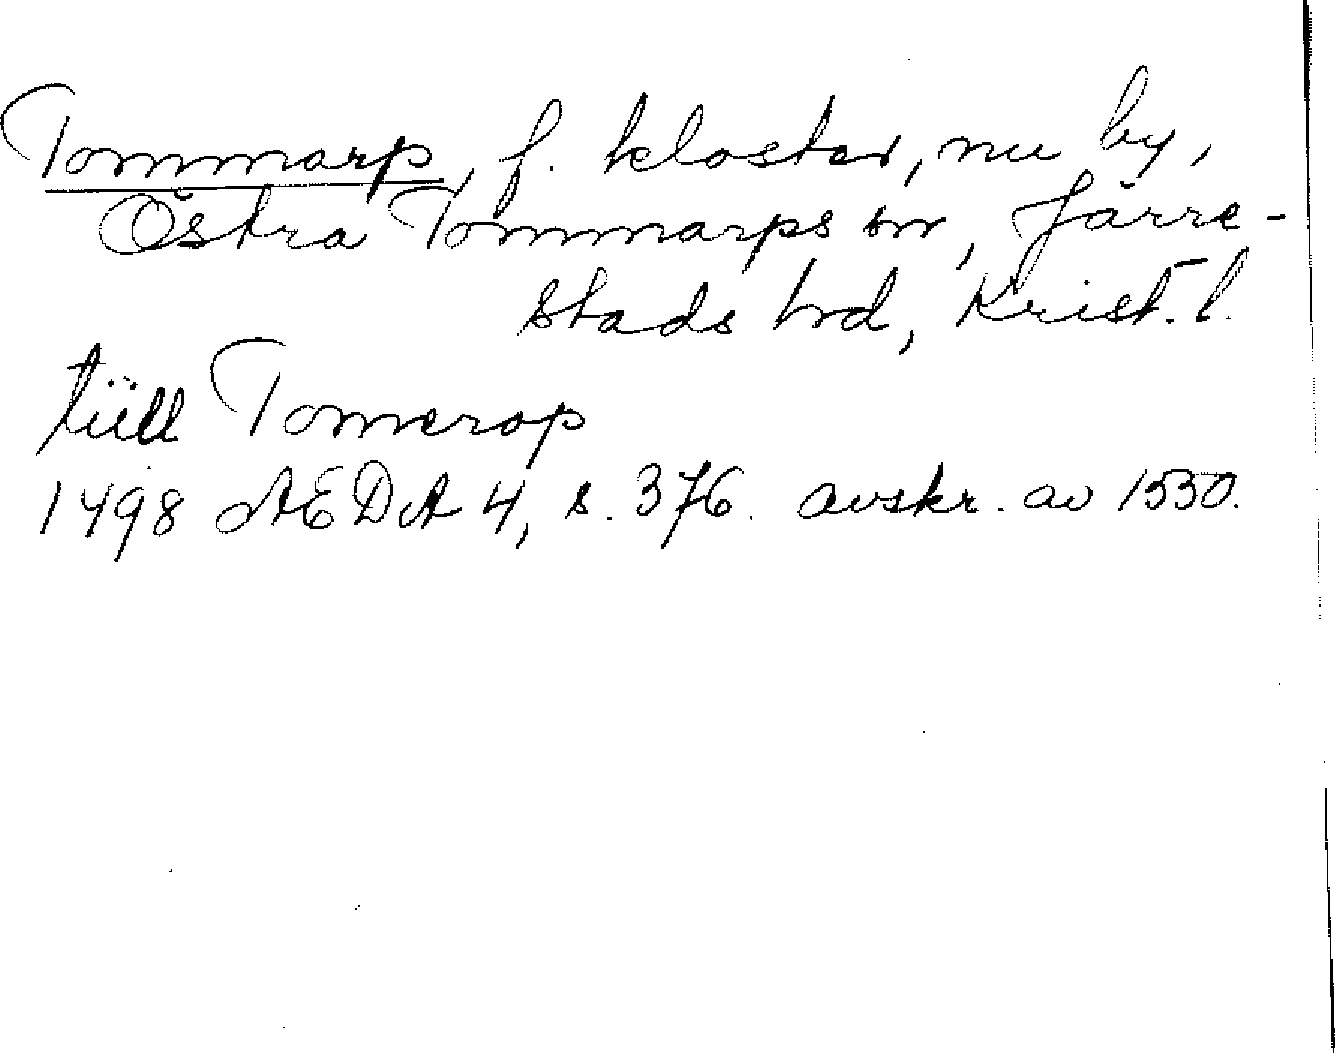 Tommarp, f. kloster, nu by,
Östra Tommarps sn, Järre-
stads hd, Krist. l.
tüll Tomerop
1498 AEDA 4, s. 376. avskr. av 1550.